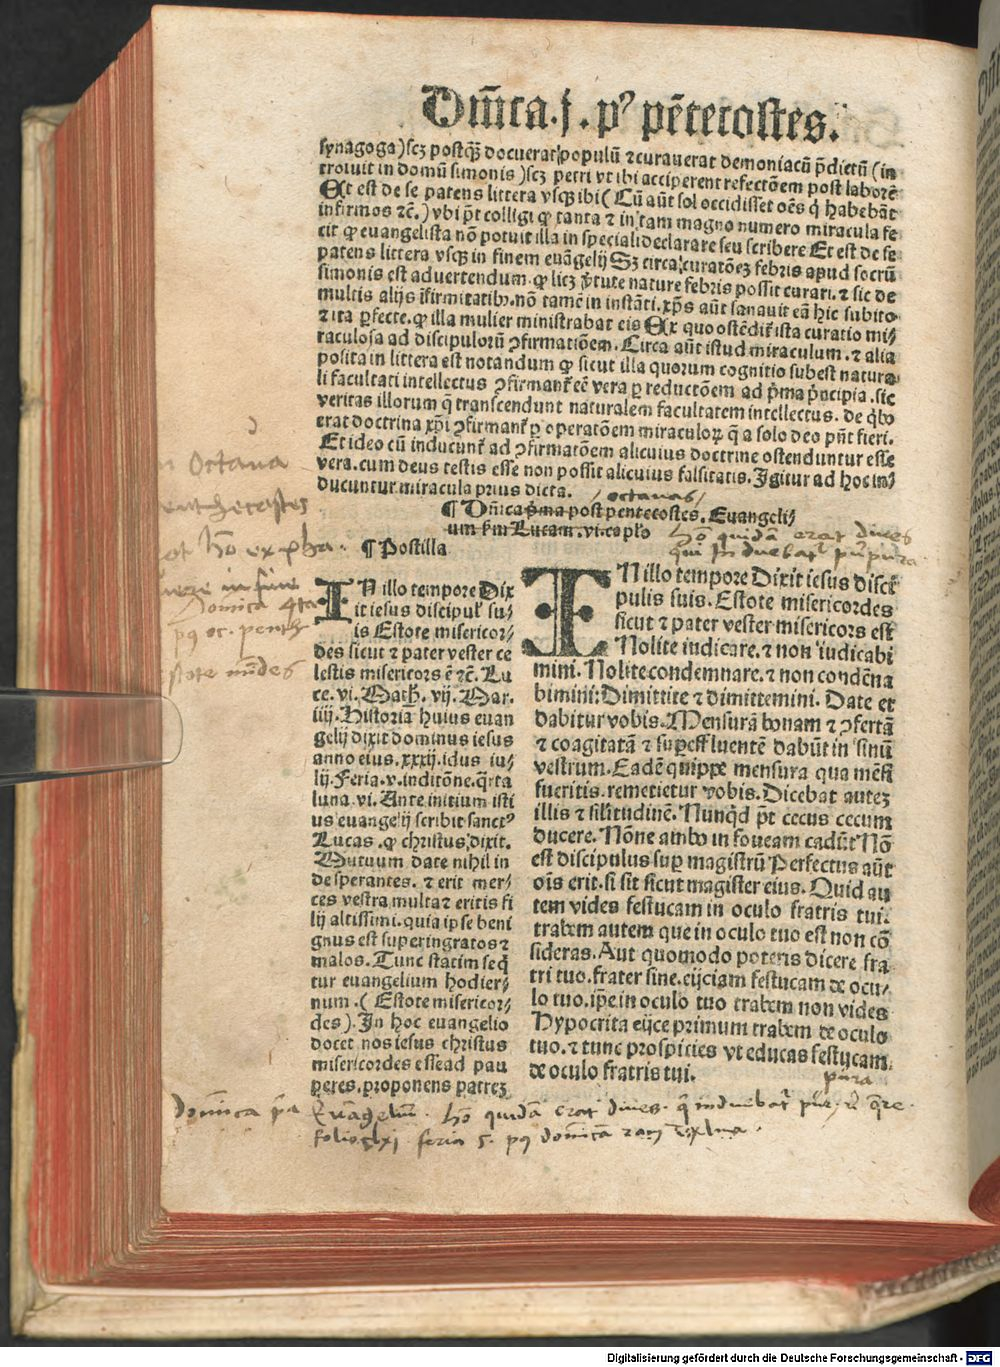 Dm̄ica.j.pꝰ pētecostes.
synagoga)scꝫ postq̄ꝫ docuerat populū ⁊curauerat demoniacū p̄dictū (in
troiuit in domū simonis )scꝫ petri vt ibi acciperent refectōem post laborē
Et est de se patens littera vsqꝫ ibi ( Cū aūt sol occidisset oēs q̇ habebāt
infirmos ⁊c̄.) vbi p̄t colligi ꝙ tanta ⁊ in tam magno numero miracula fe
cit ꝙ euangelista nō potuit illa in speciali declarare seu scribere Et est de se
patens littera vsqꝫ in finem euāgelij Sꝫ circa curatōeꝫ febris apud socrū
simonis est aduertendum ꝙ licꝫ ꝟtute nature febris possit curari. ⁊ sic de
multis alijs īfirmitatibꝰ.nō tamē in instāti. xp̄s aūt sanauit eā hic subito
⁊ ita ꝑfecte. ꝙ illa mulier ministrabat eis Ex quo ostēdit̄ ista curatio mi⸗
raculosa ad discipuloꝝ ꝯfirmatiōem. Circa aūt istud miraculum. ⁊ alia
posita in littera est notandum ꝙ sicut illa quorum cognitio subest natura
li facultati intellectus ꝯfirmant̄ eē vera ꝑ reductōem ad p̄ma p̄ncipia .sic
veritas illorum q̄ transcendunt naturalem facultatem intellectus. de q̇bꝰ
erat doctrina xp̄i ꝯfirmant̄ ꝑ operatōem miraculoꝝ q̄ a solo deo pn̄t fieri.
Et ideo cū inducunt̄ ad ꝯfirmatōem alicuius doctrine ostenduntur esse
vera. cum deus testis esse non possit alicuius falsitatis. Igitur ad hoc in⸗
ducuntur miracula prius dicta.
octauas
¶ Dn̄ica p̄ma post pentecostes. Euangeli⸗
um ẜm Lucam .vi. caplo
hō quidā erat diues
qui induebat᷑ purpura
¶ Postilla
In octaua
penthecostes
hō ex pha.
Domica 4ta
pꝰ oc. penth
In illo tempore Dix
it iesus discipul̓ su⸗
is Estote misericor⸗
des sicut ⁊ pater vester ce
lestis misericors ē ⁊c̄. Lu
ce. vi. Math. vij. Mar.
iiij. Historia huius euan
gelij dixit dominus iesus
anno eius .xxxij. idus iu⸗
lij. Feria. v. inditōne. q̄rta
luna. vi. Ante initium isti
us euangelij scribit sanctꝰ
Lucas .ꝙ christus dixit.
Mutuum date nihil in
de sperantes. ⁊ erit mer⸗
ces vestra multa ⁊ eritis fi
lij altissimi. quia ipse beni
gnus est super ingratos ⁊
malos. Tunc statim seq̇
tur euangelium hodier⸗
num .( Estote misericor⸗
des ). In hoc euangelio
docet nos iesus christus
misericordes esse ad pau
peres. proponens patreꝫ
In illo tempore Dixit iesus disci
pulis suis. Estote misericordes
sicut ⁊ pater vester misericors est
Nolite iudicare. ⁊ non iudicabi
mini. Nolite condemnare. ⁊ non condēna
bimini: Dimittite ⁊ dimittemini. Date et
dabitur vobis. Mensurā bonam ⁊ ꝯfertā
⁊ coagitatā ⁊ suꝑeffluentē dabūt in sinū
vestrum. Eadē quippe mensura qua mēsi
fueritis. remetietur vobis. Dicebat auteꝫ
illis ⁊ similitudinē. Nunq̇d p̄t cecus cecum
ducere. Nōne ambo in foueam cadūt Nō
est discipulus suꝑ magistrū Perfectus aūt
oīs erit. si sit sicut magister eius. Quid au
tem vides festucam in oculo fratris tui.
trabem autem que in oculo tuo est non cō
sideras. Aut quomodo poteris dicere fra
tri tuo. frater sine. eijciam festucam de ocu⸗
lo tuo. ip̄e in oculo tuo trabem non vides
Hypocrita eijce primum trabem de oculo
tuo. ⁊ tunc prospicies vt educas festucam
de oculo fratris tui.
pura
Domīca p̄a Euāgeliū. hō quidā erat diues. q̄ induebat᷑ pur. q̄re.
folio clxj feria 5. pꝰ domīcā
Digitalisierung gefördert durch die Deutsche Forschungsgemeinschaft - DFG